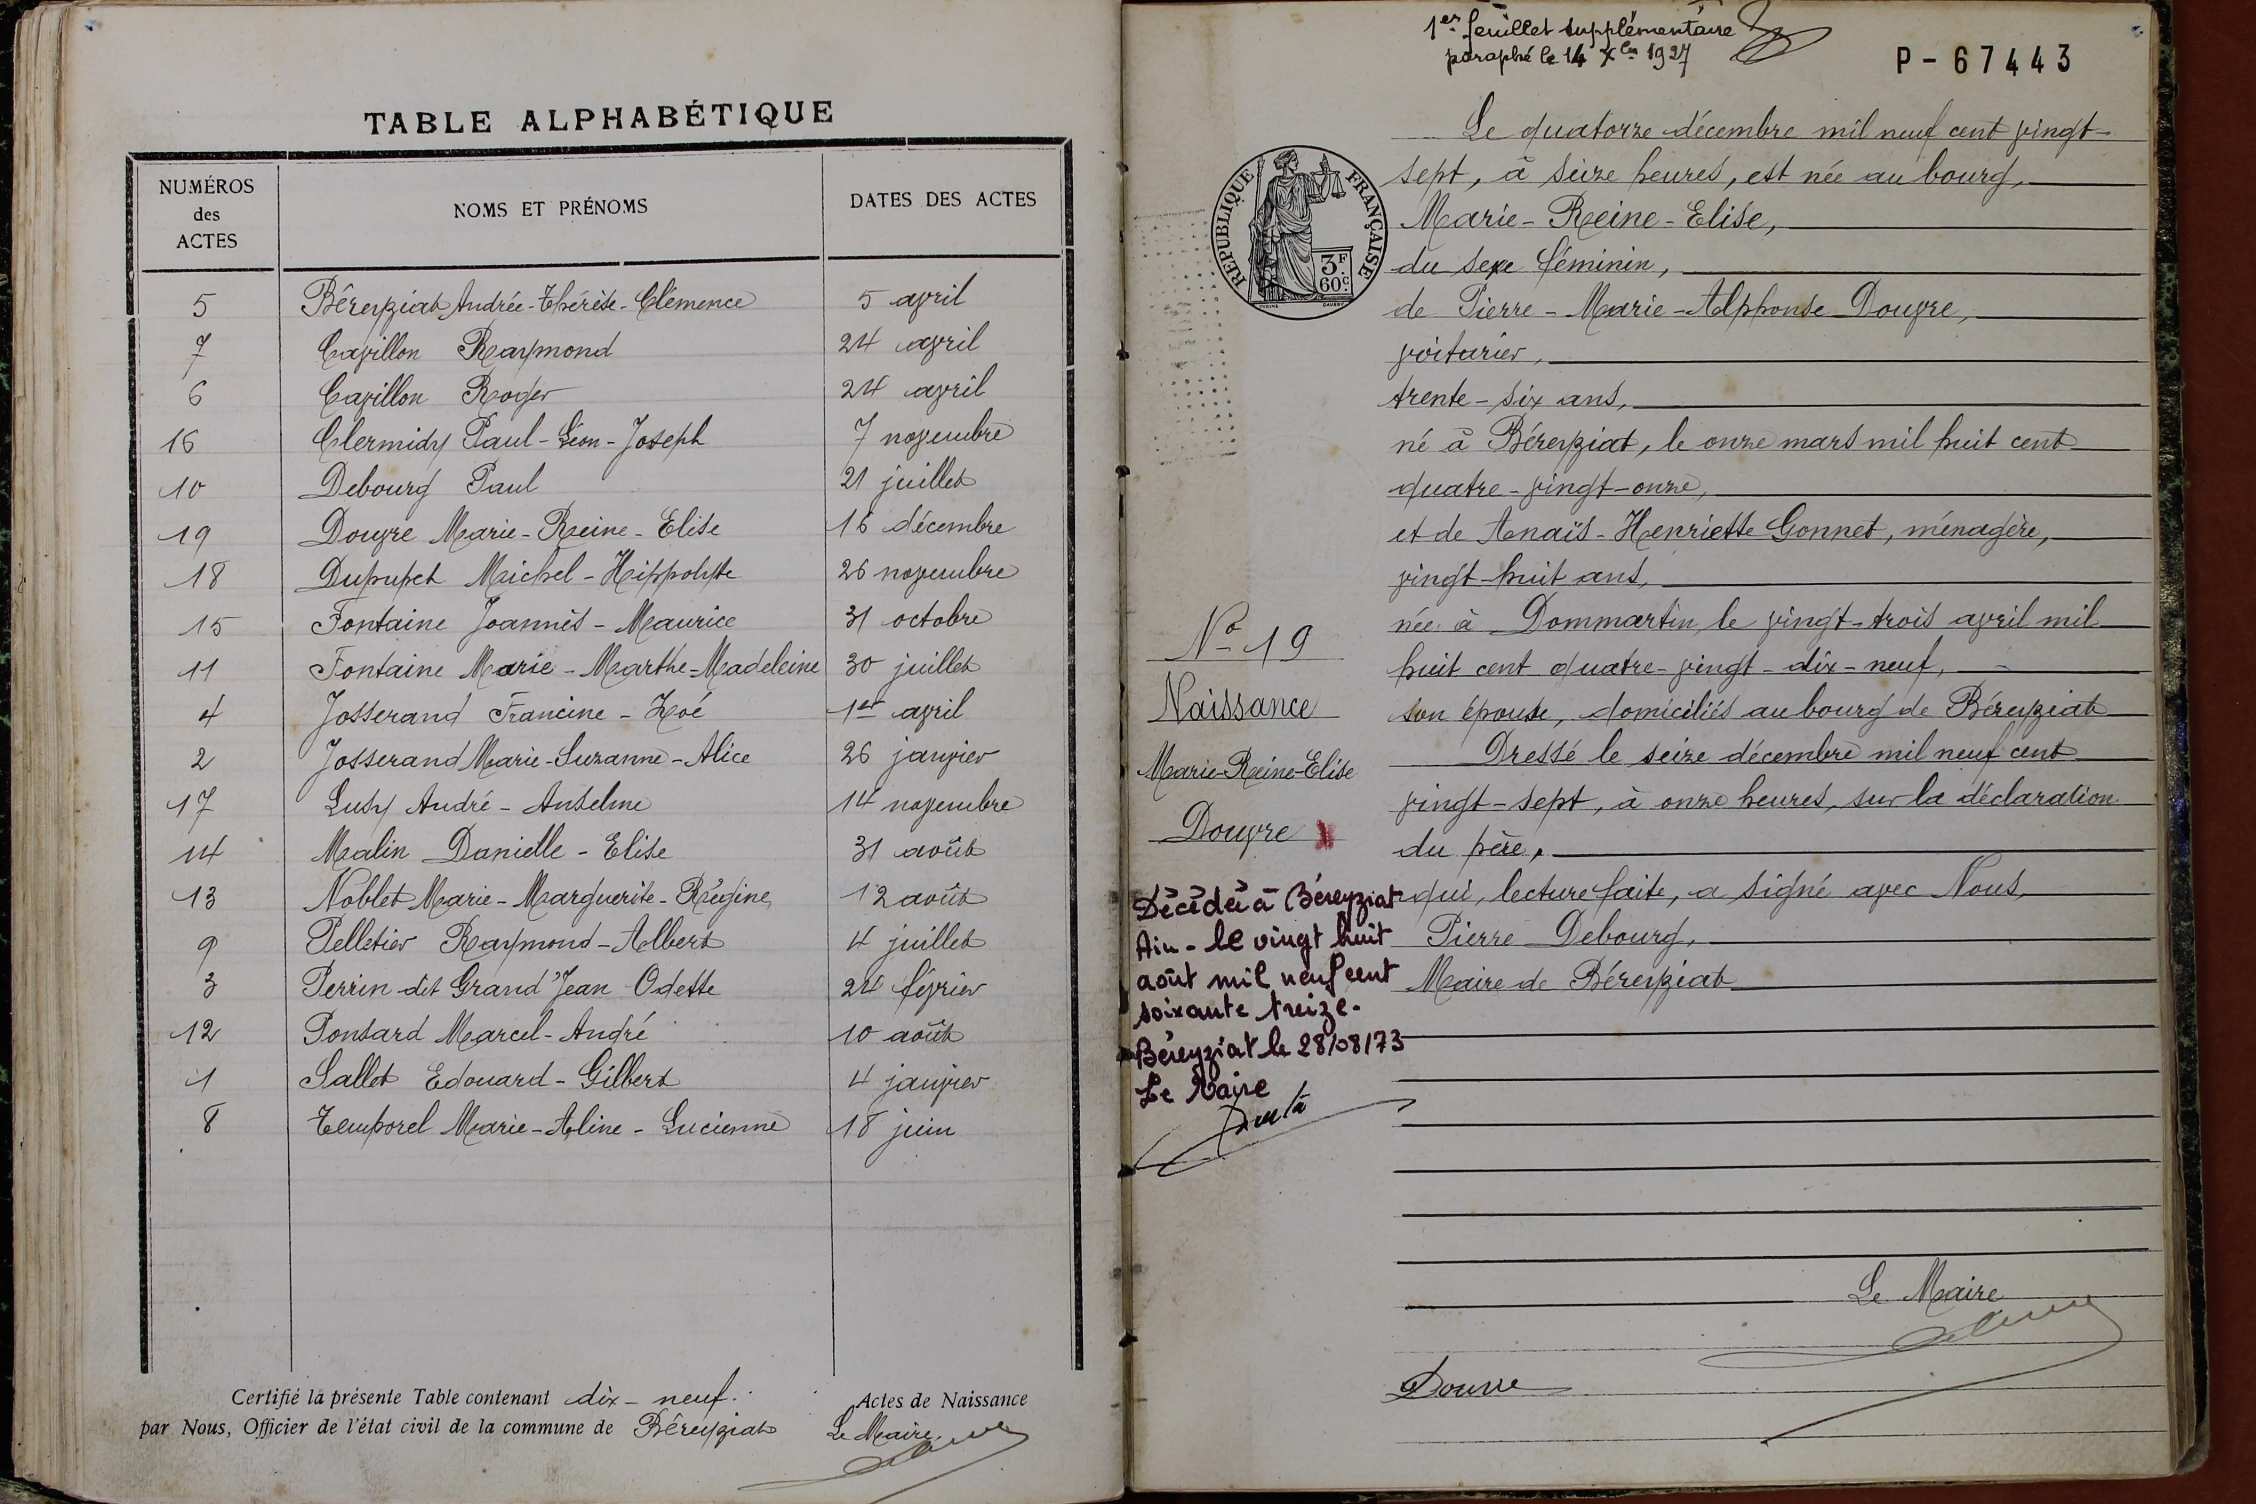 TABLE ALPHABÉTIQUE
NUMÉROS des ACTES NOMS ET PRÉNOMS DATES DES ACTES
5 Béreyziat Andrée-Thérèse-Clémence 5 avril
7 Cavillon Raymond 24 avril
6 Cavillon Roger 24 avril
16 Clermidy Paul-Léon-Joseph 7 novembre
10 Debourg Paul 21 juillet
19 Douvre Marie-Reine-Elise 16 décembre
18 Dupupet Michel-Hippolyte 26 novembre
15 Fontaine Joannès-Maurice 31 octobre
11 Fontaine Marie-Marthe-Madeleine 30 juillet
4 Josserand Francine-Zoé 1er avril
2 Josserand Marie-Suzanne-Alice 26 janvier
17 Lusy André-Anselme 14 novembre
14 Malin Danielle-Elise 31 août
13 Noblet Marie-Marguerite-Régine 12 août
9 Pelletier Raymond-Albert 4 juillet
3 Perrin dit Grand'Jean Odette 24 février
12 Ponsard Marcel-André 10 août
1 Sallet Edouard-Gilbert 4 janvier
8 Temporel Marie-Aline-Lucienne 18 juin
Certifié la présente Table contenant dix-neuf Actes de Naissance
par Nous, Officier de l'état civil de la commune de Béreyziat Le Maire,
1er feuillet supplémentaire
paraphé le 14 Xbre 1927
P-67443
RÉPUBLIQUE FRANÇAISE
3F 60c
Le quatorze décembre mil neuf cent vingt-
sept, à seize heures, est née au bourg,
Marie-Reine-Elise,
du sexe féminin,
de Pierre-Marie-Alphonse Douvre,
voiturier,
trente-six ans,
né à Béreyziat, le onze mars mil huit cent
quatre-vingt-onze,
et de Anaïs-Henriette Gonnet, ménagère,
vingt-huit ans,
née à Dommartin le vingt-trois avril mil
huit cent quatre-vingt-dix-neuf,
son épouse, domiciliés au bourg de Béreyziat
Dressé le seize décembre mil neuf cent
vingt-sept, à onze heures, sur la déclaration
du père,
qui, lecture faite, a signé avec Nous,
Pierre Debourg,
Maire de Béreyziat
Le Maire
Douvre
No 19
Naissance
Marie-Reine-Elise
Douvre
Décédée à Béreyziat
Ain - le vingt huit
août mil neuf cent
soixante treize.
Béreyziat le 28/08/73
Le Maire